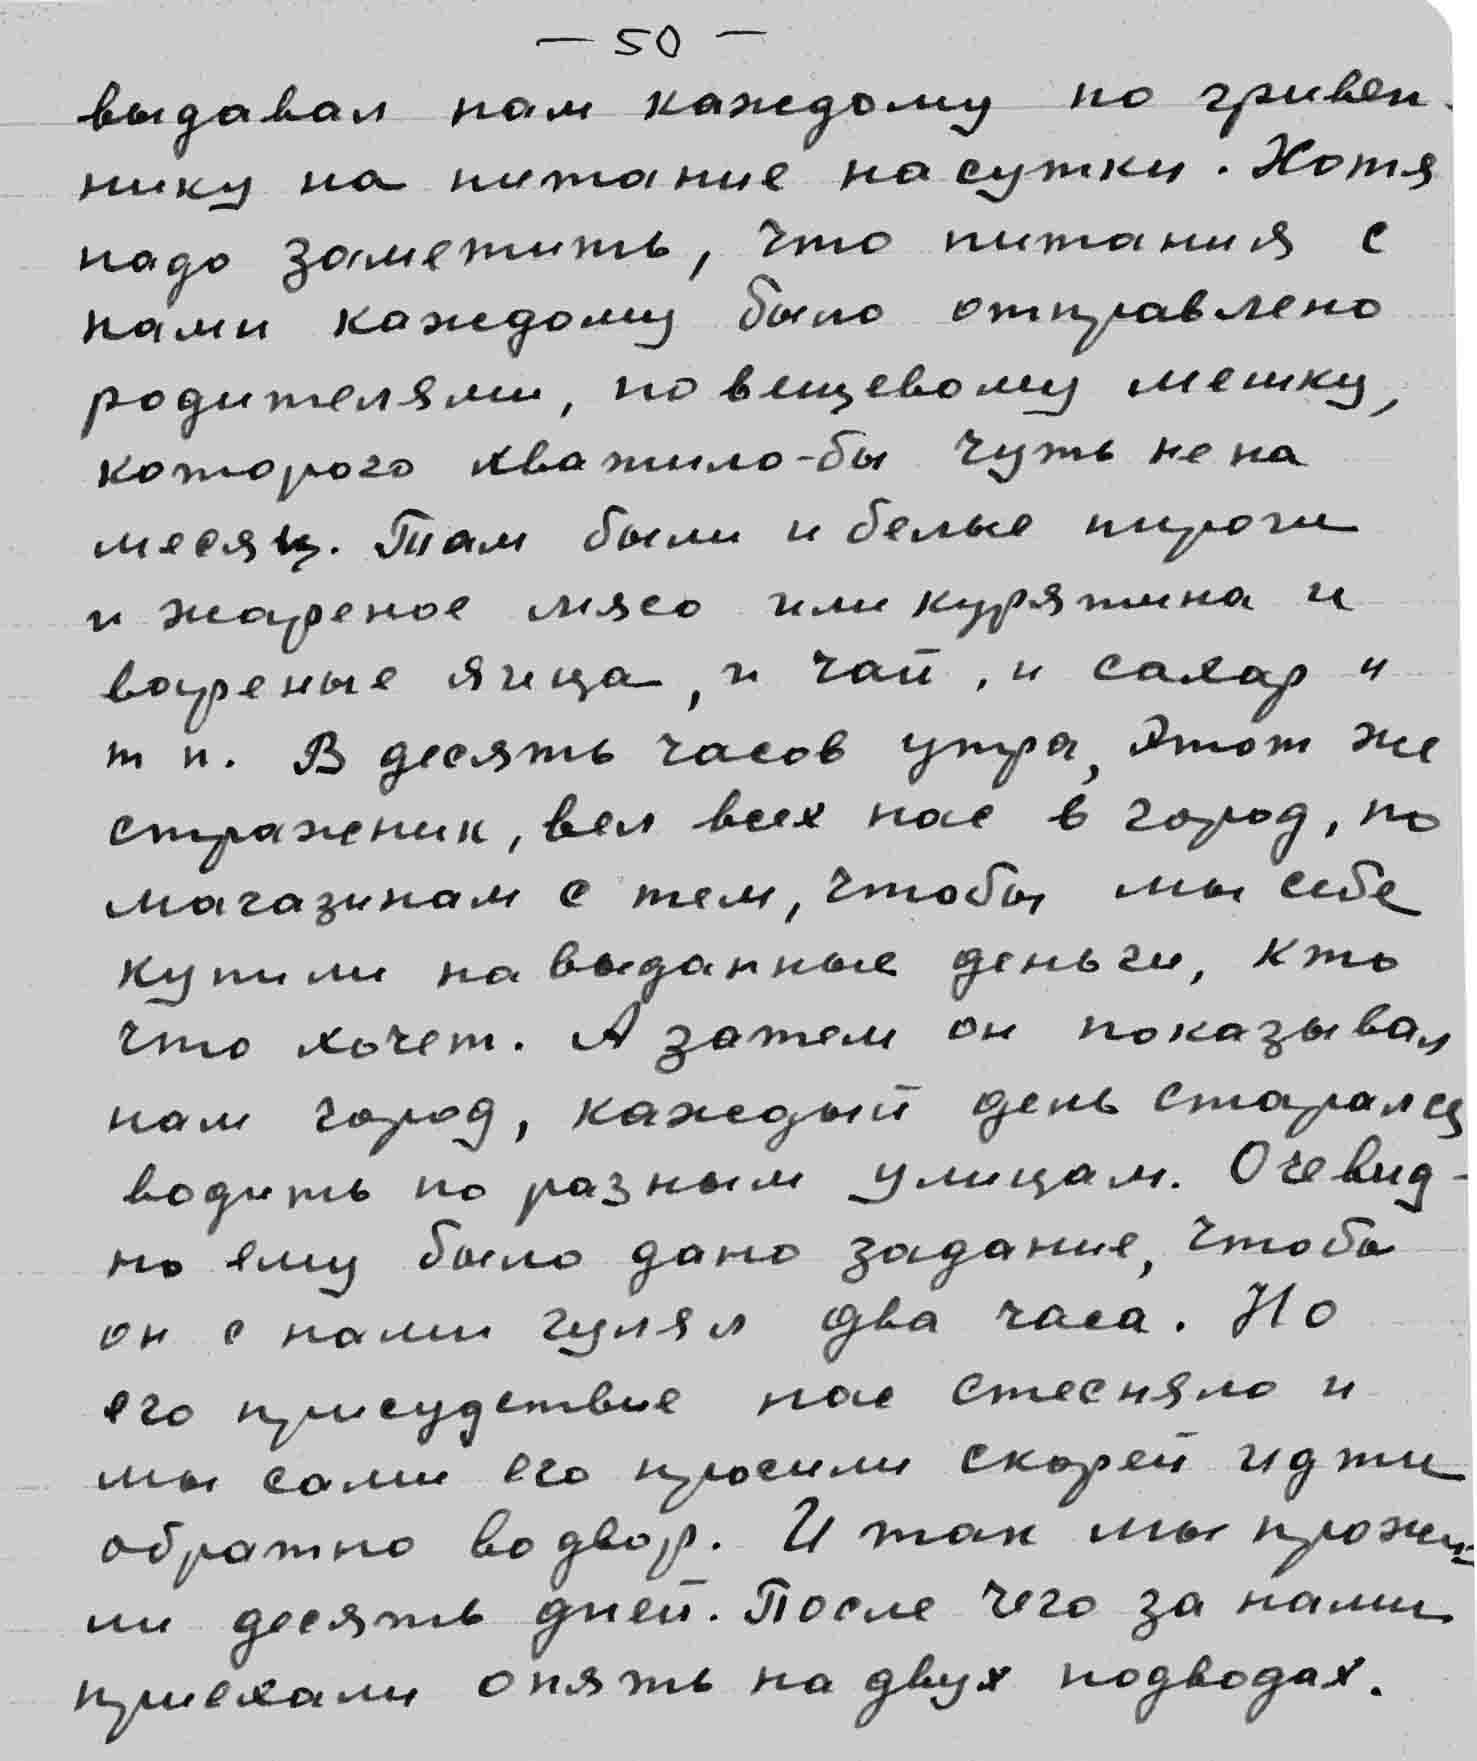 — 50 —
выдавал нам каждому по гривен-
нику на питание на сутки. Хотя
надо заметить, что питания с
нами каждому было отправлено
родителями, по вещевому мешку,
которого хватило-бы чуть не на
месяц. Там были и белые пироги
и жареное мясо или курятина и
вареные яица, и чай, и сахар и
т п. В десять часов утра, этот же
стражник, вел всех нас в город, по
магазинам с тем, чтобы мы себе
купили на выданные деньги, кто
что хочет. А затем он показывал
нам город, каждый день старался
водить по разным улицам. Очевид-
но ему было дано задание, чтобы
он с нами гулял два часа. Но
его присудствие нас стесняло и
мы сами его просили скорей идти
обратно во двор. И так мы прожи-
ли десять дней. После чего за нами
приехали опять на двух подводах.